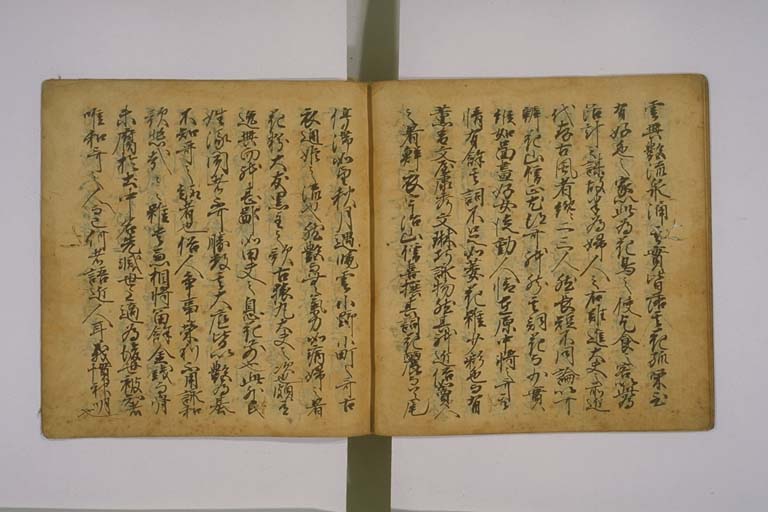 雲興艶流泉涌其實皆落其花孤榮至
有好色之家以此為花鳥之使乞食之客以此為
活計之謀故半為婦人之右難進大夫之前近
代存古風者纔二三人然長短不同論以可
辨花山僧正尤得哥躰然其詞花而少實
如圖畫好女徒動人情在原中將之哥其
情有餘其詞不足如萎花雖少彩色而有
薫香文琳巧詠物然其躰近俗如賈人
之着鮮衣宇治山僧喜撰其詞花麗而首尾
停滯如望秋月遇曉雲小野小町之哥古
衣通姫之流也然艶而無氣力如病婦之着
花粉大友黒主之歌古猿丸大夫之次也頗有
逸興而躰甚鄙如田夫之息花前也此外氏
姓流聞者不可勝數其大底皆以艶為基
不知哥之趣者也俗人爭事榮利不用詠和
歌悲哉悲哉雖貴兼相將富餘金錢而骨
未腐於土中名先滅世上適為後世被知者
唯和哥之人而已何者語近人耳義慣神明也